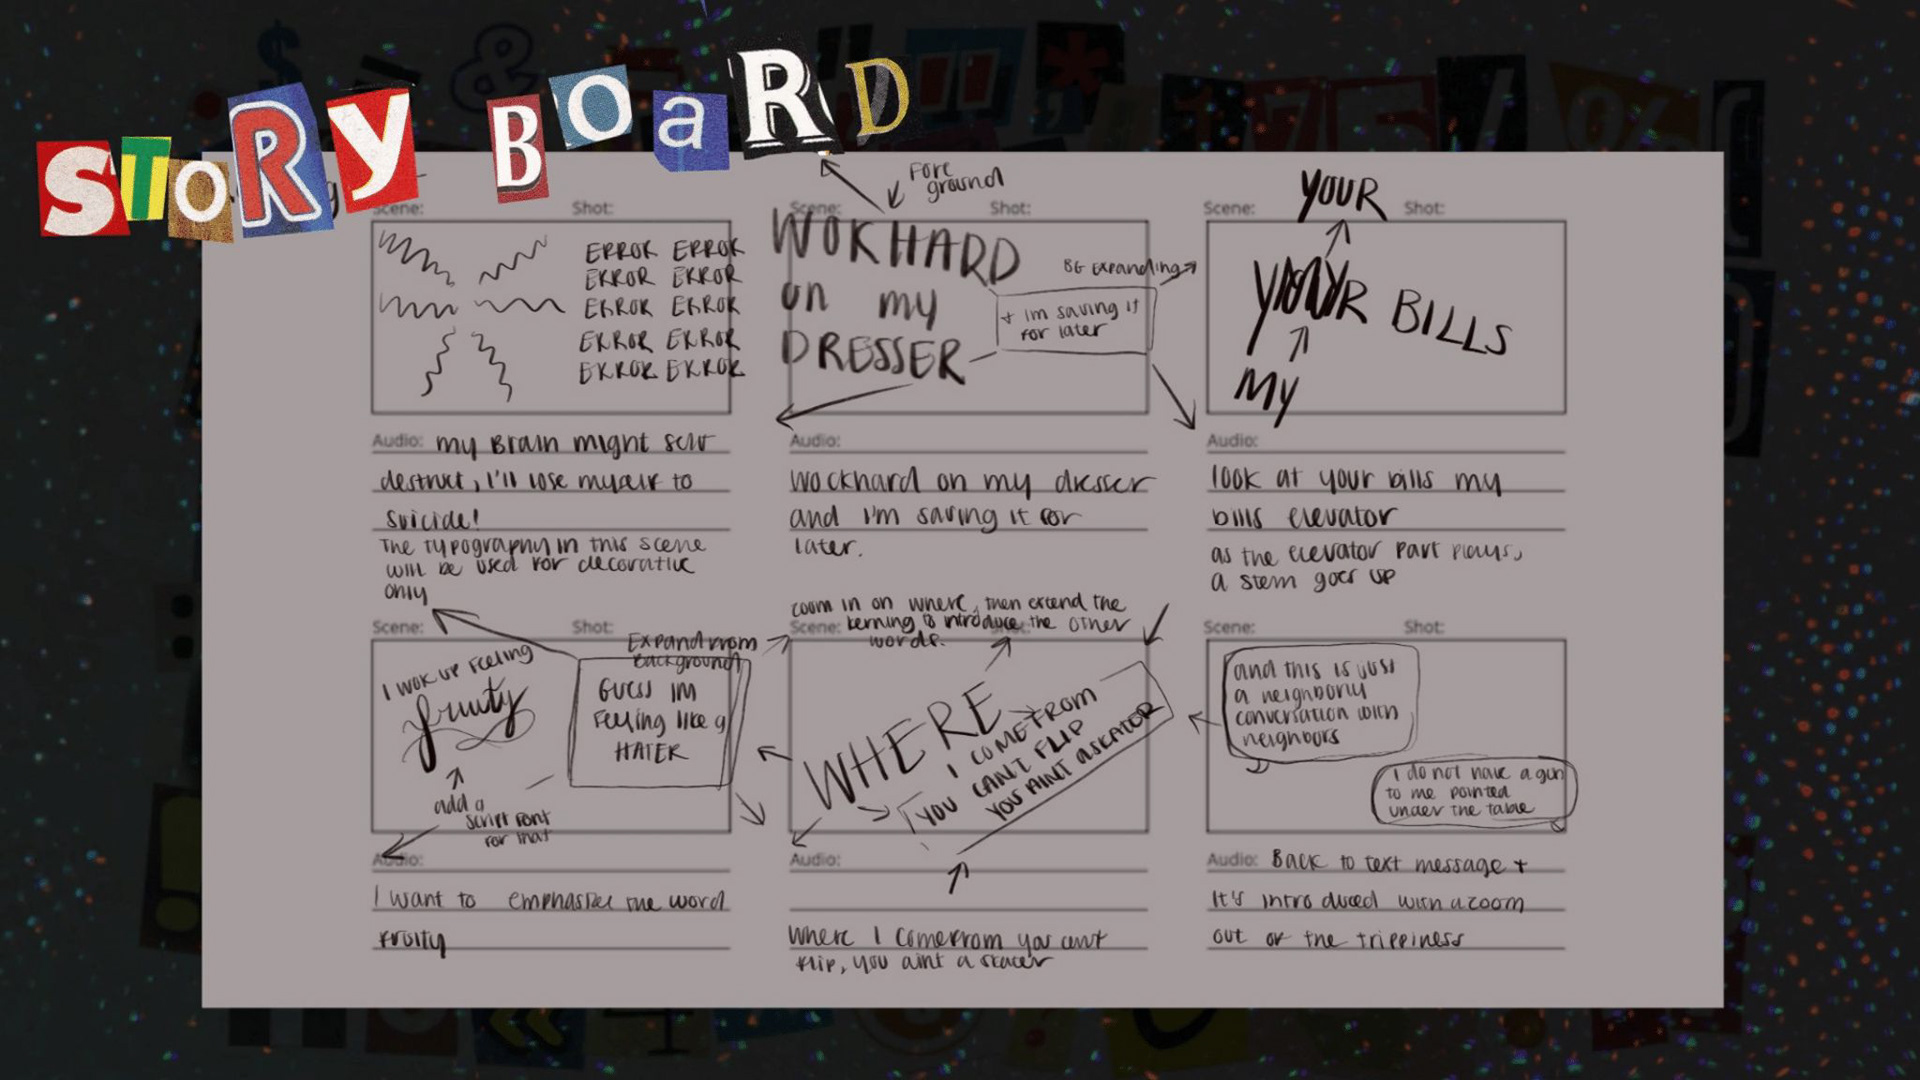 STORY BOARD
Scene: Shot:
ERROR ERROR
ERROR ERROR
ERROR ERROR
ERROR ERROR
ERROR ERROR
Audio: my Brain might self
destruct, I'll lose myself to
suicide!
The typography in this scene
will be used for decorative
only
Fore
ground
Scene: Shot:
WOKHARD
on my
DRESSER
BG Expanding
+ im saving it
for later
Audio:
wockhard on my dresser
and I'm saving it for
later.
Scene: Shot:
YOUR
YOUR BILLS
MY
Audio:
look at your bills my
bills elevator
as the elevator part plays,
a stem goes up
Scene: Shot:
Expand from
background
I wok up feeling
fruity
add a
script font
for that
GUESS IM
Feeling like a
HATER
Audio:
I want to emphasize the word
fruity
zoom in on where, then extend the
Scene: kerning to introduce the other
words.
WHERE
I COME FROM
YOU CANT FLIP
YOU AINT A SKATOR
Audio:
Where I come from you cant
flip, you aint a skater
Scene: Shot:
and this is just
a neighborly
conversation with
neighbors
I do not have a gun
to me pointed
under the table
Audio: Back to text message +
It's introduced with a zoom
out of the trippiness